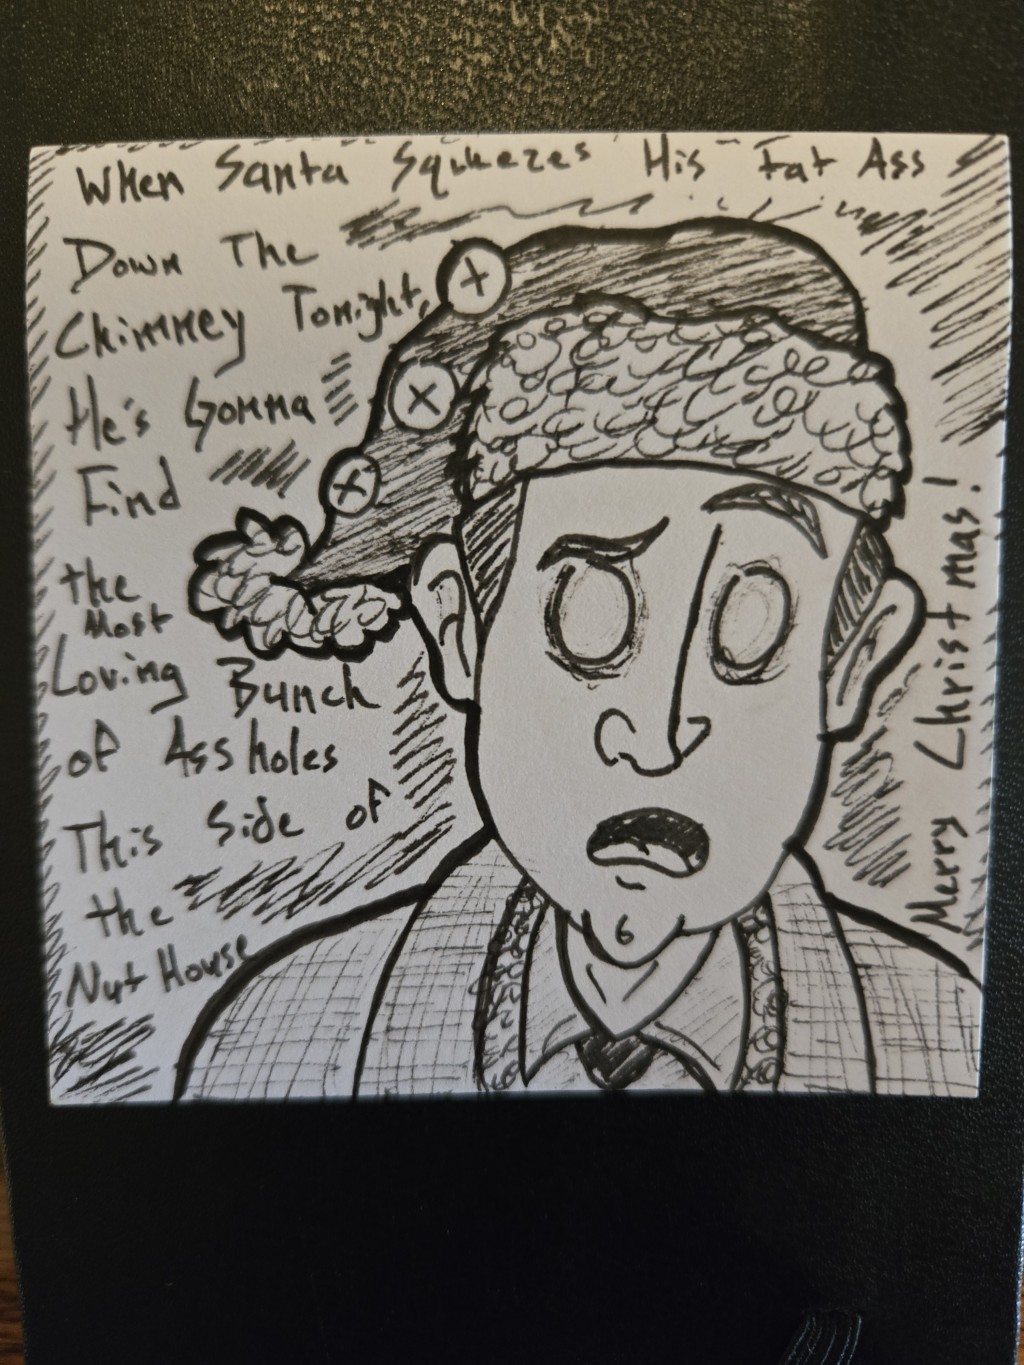 When Santa Squeezes His Fat Ass
Down The
Chimney Tonight,
He's Gonna
Find
the
Most
Loving Bunch
of Assholes
This Side of
the
Nut House
Merry Christmas!